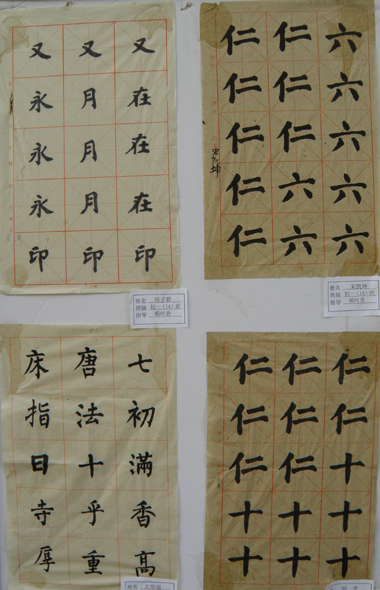 又 又 又
永 月 在
永 月 在
永 月 在
印 印 印
姓名
班级 初一(14)班
指导
仁 仁 六
仁 仁 六
仁 仁 六
仁 六 六
仁 六 六
姓名 宋凯坤
班级 初一(14)班
指导
床 唐 七
指 法 初
日 十 滿
寺 乎 香
厚 重 高
姓名
仁 仁 仁
仁 仁 仁
仁 仁 十
十 十 十
十 十 十